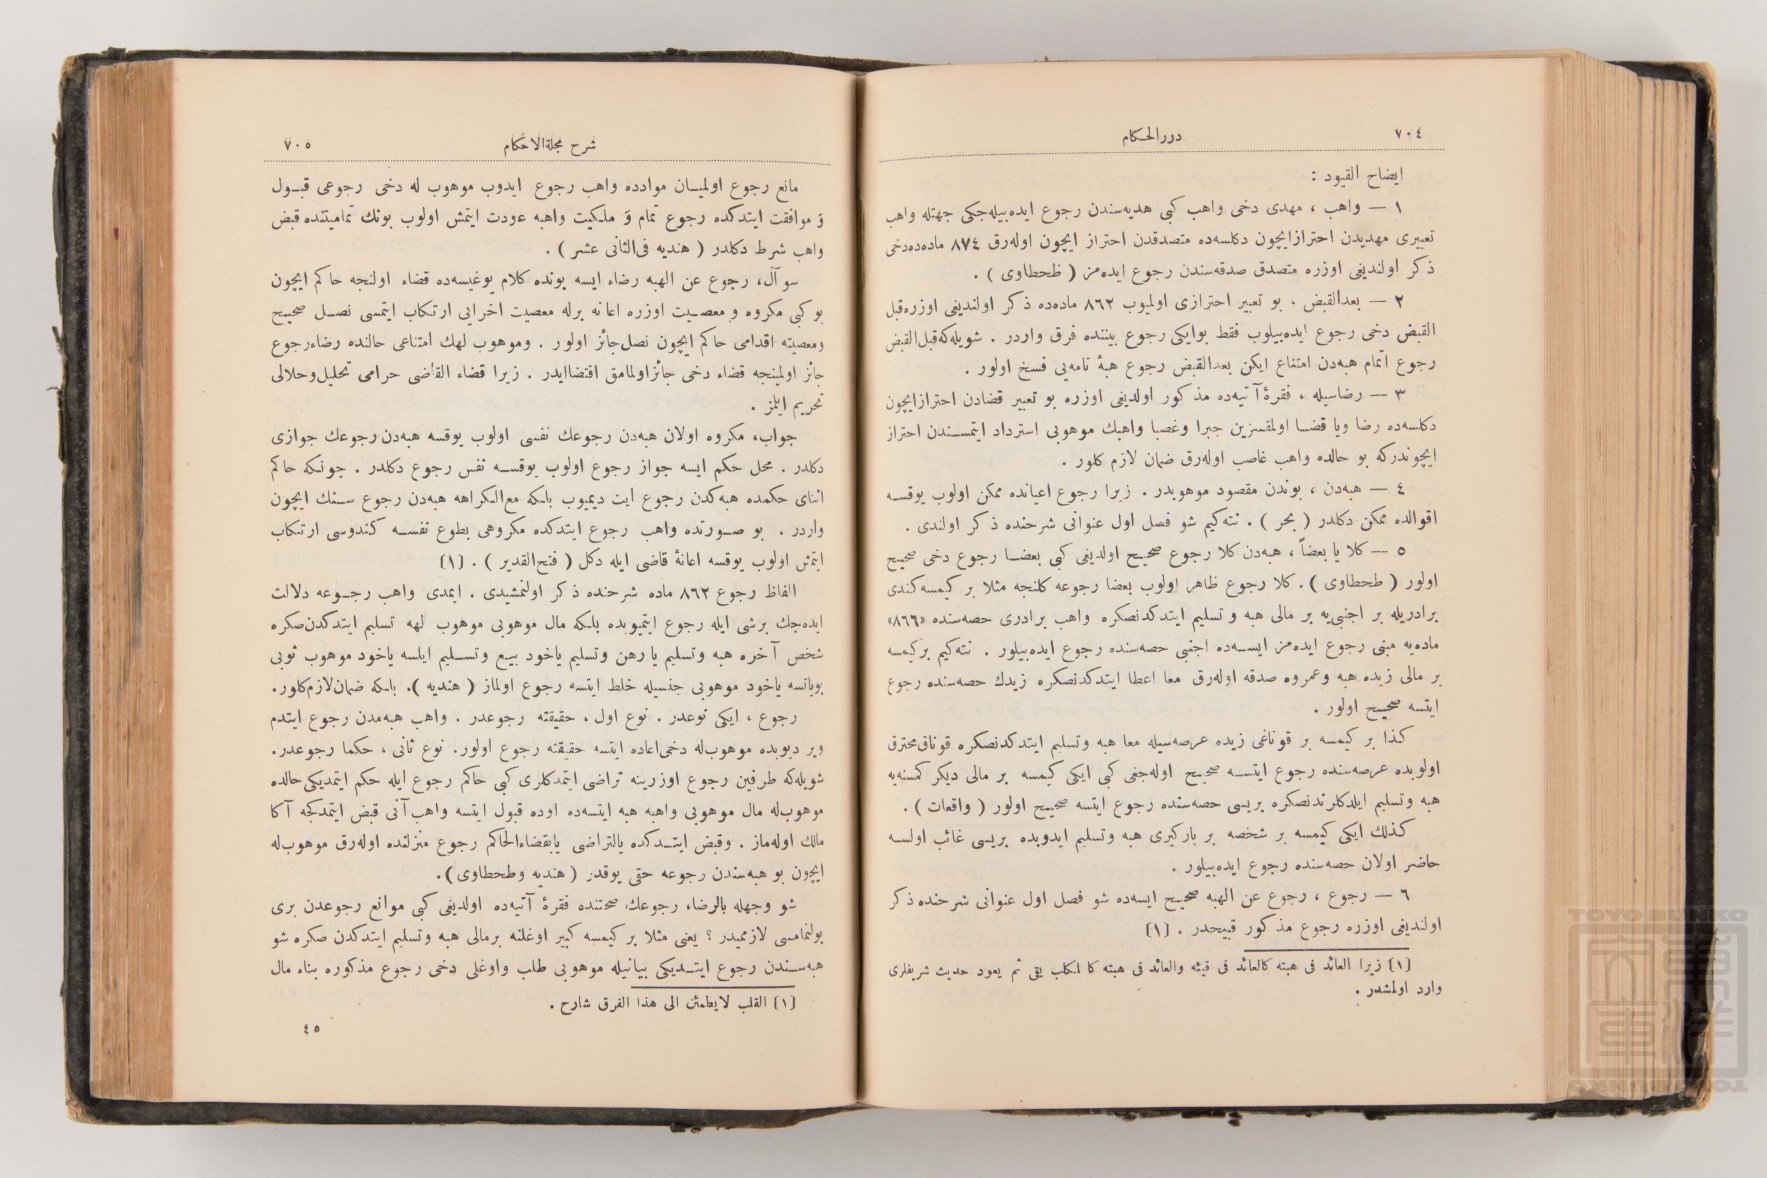 ٧٠٤
دررالحكام
ايضاح القيود :
١ — واهب ، مهدى دخى واهب كبى هديه‌سندن رجوع ايده‌بيله‌جكى جهتله واهب
تعبيرى مهديدن احترازايچون دكلسه‌ده متصدقدن احتراز ايچون اوله‌رق ٨٧٤ ماده‌ده‌دخى
ذكر اولنديغى اوزره متصدق صدقه‌سندن رجوع ايده‌مز ( طحطاوى ) .
٢ — بعدالقبض ، بو تعبير احترازى اولميوب ٨٦٢ ماده‌ده ذكر اولنديغى اوزره‌قبل
القبض دخى رجوع ايده‌بيلوب فقط بوايكى رجوع بيننده فرق واردر . شويله‌كه‌قبل‌القبض
رجوع اتمام هبه‌دن امتناع ايكن بعدالقبض رجوع هبهٔ تامه‌يى فسخ اولور .
٣ — رضاسيله ، فقرهٔ آتيه‌ده مذكور اولديغى اوزره بو تعبير قضادن احترازايچون
دكلسه‌ده رضا ويا قضا اولمقسزين جبرا وغصبا واهبك موهوبى استرداد ايتمسندن احتراز
ايچوندركه بو حالده واهب غاصب اوله‌رق ضمان لازم كلور .
٤ — هبه‌دن ، بوندن مقصود موهوبدر . زيرا رجوع اعيانده ممكن اولوب يوقسه
اقوالده ممكن دكلدر ( بحر ) . نته‌كيم شو فصل اول عنوانى شرحنده ذكر اولندى .
٥ — كلا يا بعضاً ، هبه‌دن كلا رجوع صحيح اولديغى كبى بعضا رجوع دخى صحيح
اولور ( طحطاوى ) . كلا رجوع ظاهر اولوب بعضا رجوعه كلنجه مثلا بر كيمسه‌كندى
برادريله بر اجنبى‌يه بر مالى هبه و تسليم ايتدكدنصكره واهب برادرى حصه‌سنده «٨٦٦»
ماده‌يه مبنى رجوع ايده‌مز ايسه‌ده اجنبى حصه‌سنده رجوع ايده‌بيلور . نته‌كيم بركيمسه
بر مالى زيده هبه وعمروه صدقه اوله‌رق معا اعطا ايتدكدنصكره زيدك حصه‌سنده رجوع
ايتسه صحيح اولور .
كذا بر كيمسه بر قوناغى زيده عرصه‌سيله معا هبه وتسليم ايتدكدنصكره قوناق‌محترق
اولوبده عرصه‌سنده رجوع ايتسه صحيح اوله‌جغى كبى ايكى كيمسه بر مالى ديكر كمسنه‌يه
هبه وتسليم ايلدكلرندنصكره بريسى حصه‌سنده رجوع ايتسه صحيح اولور ( واقعات ) .
كذلك ايكى كيمسه بر شخصه بر باركيرى هبه وتسليم ايدوبده بريسى غائب اولسه
حاضر اولان حصه‌سنده رجوع ايده‌بيلور .
٦ — رجوع ، رجوع عن الهبه صحيح ايسه‌ده شو فصل اول عنوانى شرحنده ذكر
اولنديغى اوزره رجوع مذكور قبيحدر . [١]
[١] زيرا العائد فى هبته كالعائد فى قيئه والعائد فى هبته كا لكلب يقى ثم يعود حديث شريفلرى
وارد اولمشدر .
شرح مجلةالاحكام
٧٠٥
مانع رجوع اولميان موادده واهب رجوع ايدوب موهوب له دخى رجوعى قبول
و موافقت ايتدكده رجوع تمام و ملكيت واهبه عودت ايتمش اولوب بونك تماميتنده قبض
واهب شرط دكلدر ( هنديه فى‌الثانى عشر ) .
سوآل، رجوع عن الهبه رضاء ايسه بونده كلام يوغيسه‌ده قضاء اولنجه حاكم ايچون
بو كبى مكروه و معصيت اوزره اعانه برله معصيت اخرايى ارتكاب ايتمسى نصل صحيح
ومعصيته اقدامى حاكم ايچون نصل‌جائز اولور . وموهوب لهك امتناعى حالنده رضاءرجوع
جائز اولمينجه قضاء دخى جائزاولمامق اقتضاايدر . زيرا قضاء القاضى حرامى تحليل‌وحلالى
تحريم ايلمز .
جواب، مكروه اولان هبه‌دن رجوعك نفسى اولوب يوقسه هبه‌دن رجوعك جوازى
دكلدر . محل حكم ايسه جواز رجوع اولوب يوقسه نفس رجوع دكلدر . چونكه حاكم
اثناى حكمده هبه‌كدن رجوع ايت ديميوب بلكه مع‌الكراهه هبه‌دن رجوع سنك ايچون
واردر . بو صورتده واهب رجوع ايتدكده مكروهى بطوع نفسه كندوسى ارتكاب
ايتمش اولوب يوقسه اعانهٔ قاضى ايله دكل ( فتح‌القدير ) . [١]
الفاظ رجوع ٨٦٢ ماده شرحنده ذكر اولنمشيدى . ايمدى واهب رجوعه دلالت
ايده‌جك برشى ايله رجوع ايتميوبده بلكه مال موهوبى موهوب لهه تسليم ايتدكدن‌صكره
شخص آخره هبه وتسليم يا رهن وتسليم ياخود بيع وتسليم ايلسه ياخود موهوب ثوبى
بويانسه ياخود موهوبى جنسيله خلط ايتسه رجوع اولماز ( هنديه ). بلكه ضمان‌لازم‌كلور.
رجوع ، ايكى نوعدر . نوع اول ، حقيقته رجوعدر . واهب هبه‌مدن رجوع ايتدم
وير ديوبده موهوب‌له دخى‌اعاده ايتسه حقيقته رجوع اولور. نوع ثانى ، حكما رجوعدر.
شويله‌كه طرفين رجوع اوزرينه تراضى ايتمدكلرى كبى حاكم رجوع ايله حكم ايتمديكى‌حالده
موهوب‌له مال موهوبى واهبه هبه ايتسه‌ده اوده قبول ايتسه واهب آنى قبض ايتمدكجه آكا
مالك اوله‌ماز . وقبض ايتدكده يالتراضى يابقضاءالحاكم رجوع منزلنده اوله‌رق موهوب‌له
ايچون بو هبه‌سندن رجوعه حقى يوقدر ( هنديه وطحطاوى ).
شو وجهله بالرضاء رجوعك صحتنده فقرهٔ آتيه‌ده اولديغى كبى موانع رجوعدن برى
بولنمامسى لازمميدر ؟ يعنى مثلا بر كيمسه كبير اوغلنه برمالى هبه وتسليم ايتدكدن صكره شو
هبه‌سندن رجوع ايتديكى بيانيله موهوبى طلب واوغلى دخى رجوع مذكوره بناء مال
[١] القلب لايطمئن الى هذا الفرق شارح .
٤٥
TOYO BUNKO